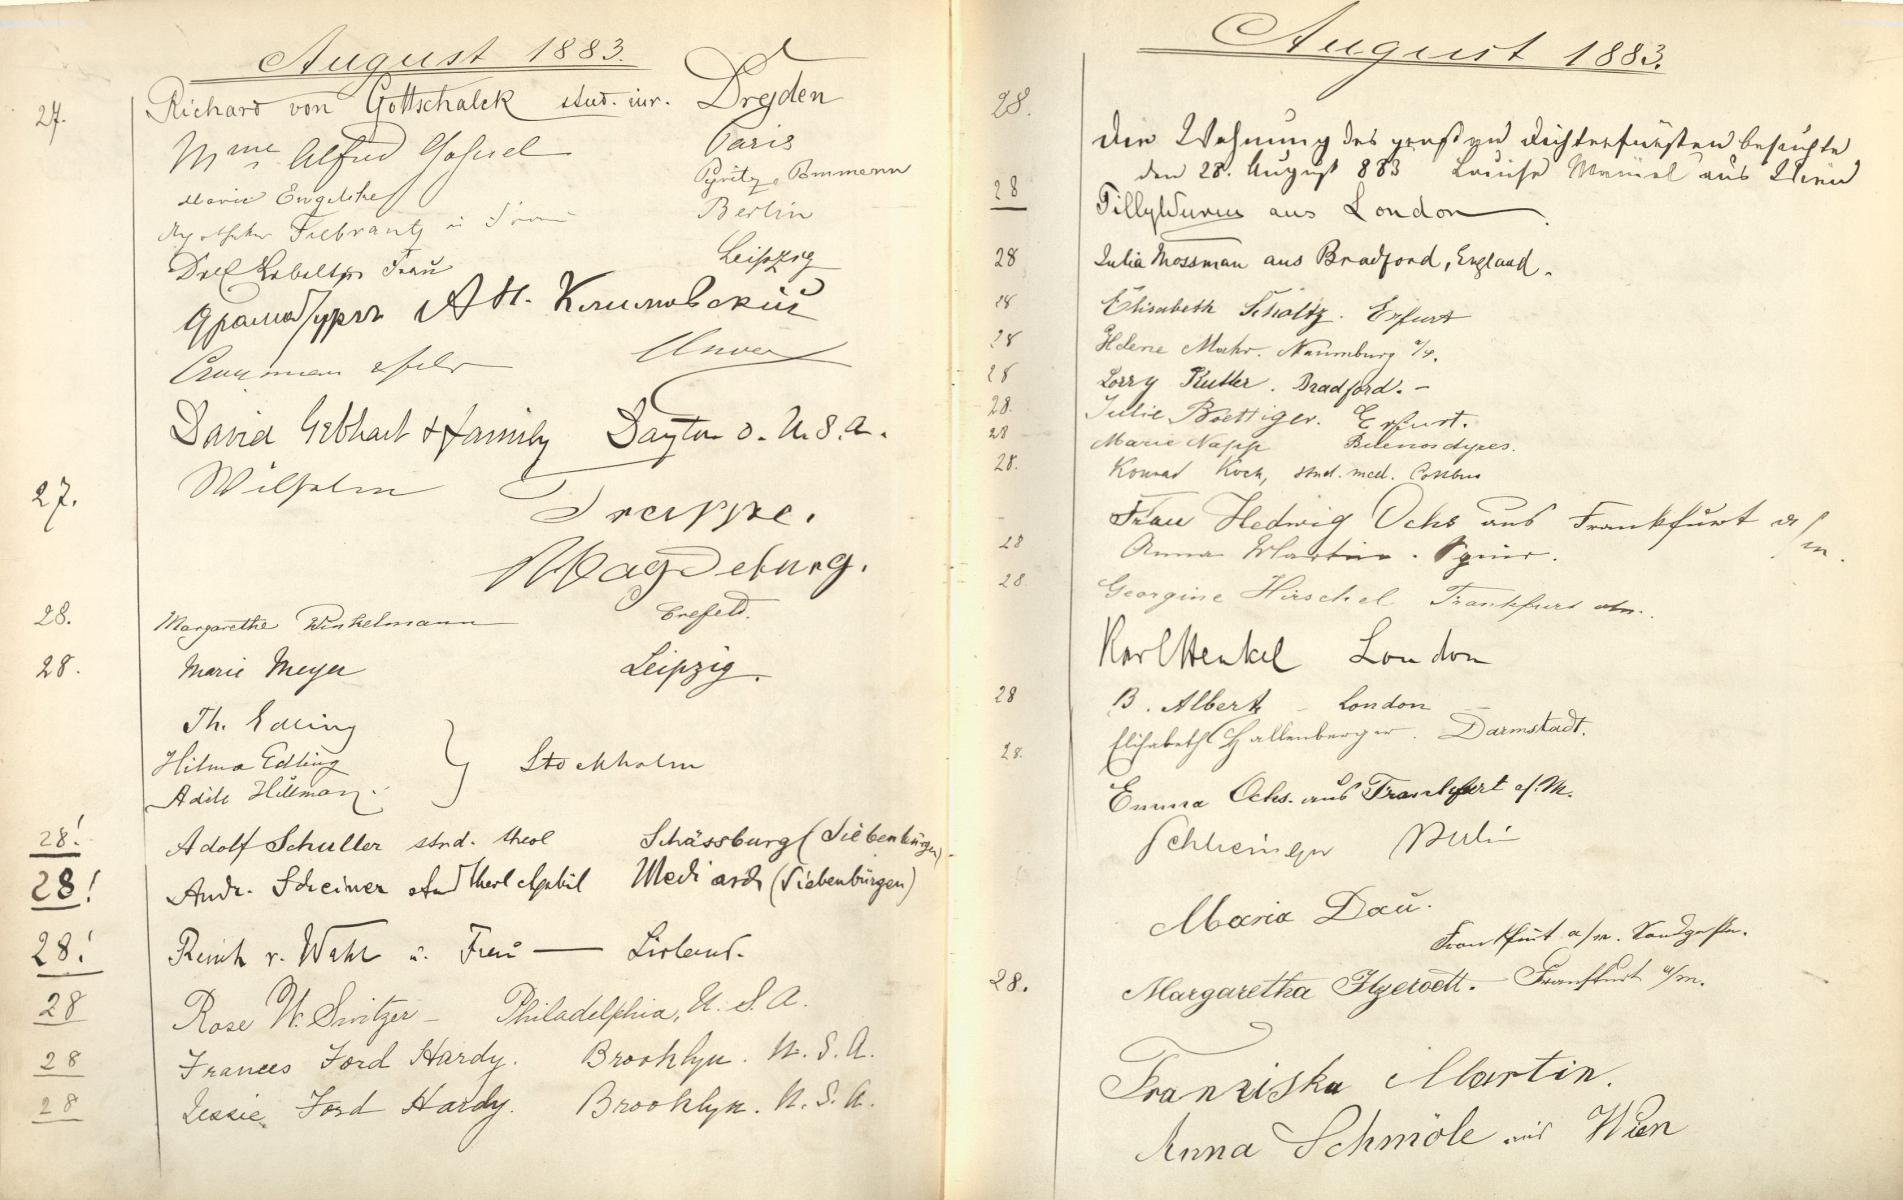 August 1883.
27. Richard von Gottschalck stud. iur. Dresden
Mme Alfred Paris
Marie Engelke Pyritz, Pommern
Fiebrantz u Frau Berlin
Frau Leipzig
Драматургъ Ан. Климовскій
David Gebhart & family Dayton O. U.S.A.
27. Wilhelm Trappe.
Magdeburg.
28. Margarethe Winkelmann Crefeld.
28. Marie Meyer Leipzig.
Th. Edling
Hilma Edling } Stockholm
Adile Hillman
28! Adolf Schuller stud. theol Schässburg (Siebenbürgen)
28! Andr. Scheiner stud theol & phil Mediasch (Siebenbürgen)
28! v. Wahl u. Frau — Livland.
28 Rose W. Switzer – Philadelphia, U. S. A.
28 Frances Ford Hardy. Brooklyn. U. S. A.
28 Jessie Ford Hardy. Brooklyn. U. S. A.
August 1883.
28. Die Wohnung des großen Dichterfürsten besuchte
den 28. August 883 Louise aus Wien
28 Tilly aus London
28 Julia Mossman aus Bradford, England.
28 Elisabeth Scholtz. Erfurt
28 Helene Mahr. Naumburg a/S.
28 Lorry Rutter. Bradford. –
28. Julie Boettiger. Erfurt.
28 Marie Napp Buenos Ayres.
28. Konrad Koch, stud. med. Cottbus
Frau Hedwig Ochs aus Frankfurt a/m.
28 Anna Martin.
28 Georgine Hirschel Frankfurt a/m.
Karl Henkel London
28 B. Albert – London
28. Elisabeth Hallenberger. Darmstadt.
Emma Ochs. aus Frankfurt a/M.
Schlesinger Berlin
Maria Dau.
Frankfurt a/m.
28. Margaretha – Frankfurt a/m.
Franziska Martin.
Anna Schmöle aus Wien